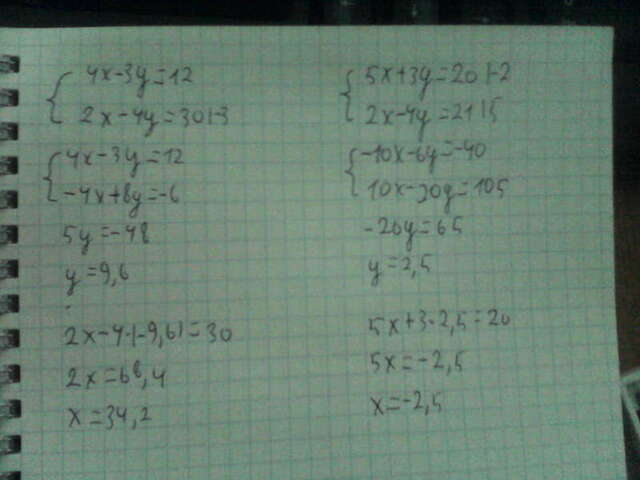 4x-3y=12
2x-4y=30|-3
4x-3y=12
-4x+8y=-6
5y=-48
y=9,6
2x-4·(-9,6)=30
2x=68,4
x=34,2
5x+3y=20|-2
2x-4y=21|5
-10x-6y=-40
10x-20y=105
-26y=65
y=2,5
5x+3·2,5=20
5x=-2,5
x=-2,5